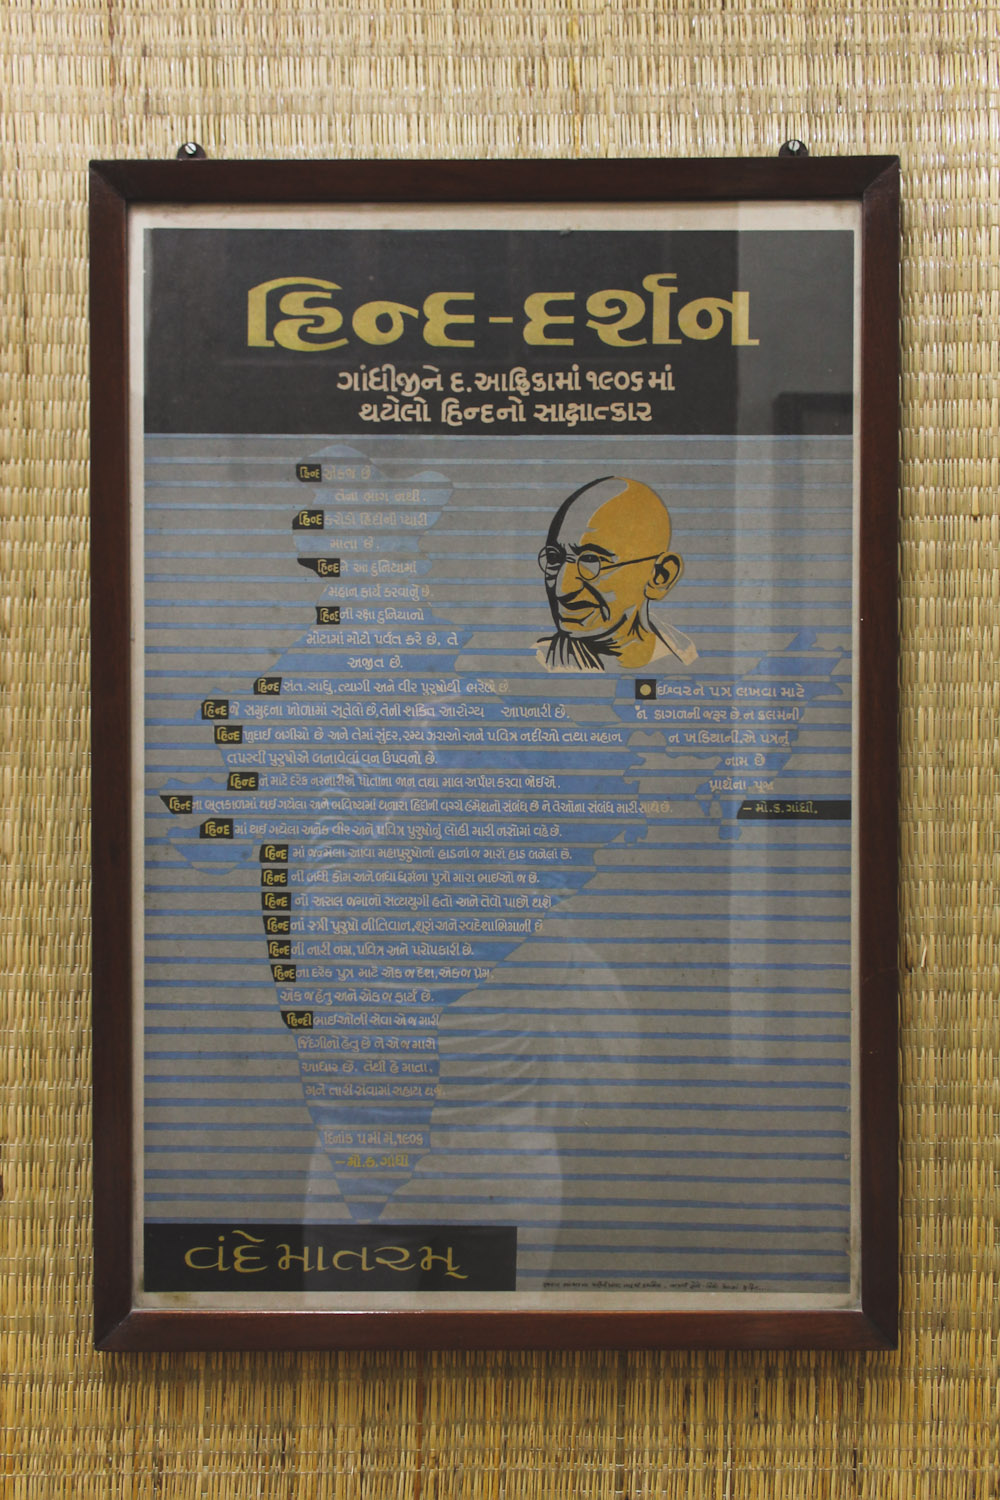 હિન્દ-દર્શન
ગાંધીજીને દ.આફ્રિકામાં ૧૯૦૬ માં
થયેલો હિન્દનો સાક્ષાત્કાર
હિન્દ એકજ છે
તેના ભાગ નથી.
હિન્દ કરોડો હિંદીની પ્યારી
માતા છે.
હિન્દને આ દુનિયામાં
મહાન કાર્ય કરવાનું છે.
હિન્દની રક્ષા દુનિયાનો
મોટામાં મોટો પર્વત કરે છે, તે
અજીત છે.
હિન્દ સંત, સાધુ, ત્યાગી અને વીર પુરુષોથી ભરેલો છે
હિન્દ જે સમુદ્રના ખોળામાં સૂતેલો છે,તેની શક્તિ આરોગ્ય આપનારી છે.
હિન્દ ખુદાઈ બગીચો છે અને તેમાં સુંદર, રમ્ય ઝરાઓ અને પવિત્ર નદીઓ તથા મહાન
તપસ્વી પુરુષોએ બનાવેલાં વન ઉપવનો છે.
હિન્દ ને માટે દરેક નરનારીએ પોતાના જાન તથા માલ અર્પણ કરવા જોઈએ.
હિન્દના ભૂતકાળમાં થઈ ગયેલા અને ભવિષ્યમાં થનારા હિંદીની વચ્ચે હંમેશનો સંબંધ છે ને તેઓના સંબંધ મારી સાથે છે.
હિન્દ માં થઈ ગયેલા અનેક વીર અને પવિત્ર પુરુષોનું લોહી મારી નસોમાં વહે છે.
હિન્દ માં જન્મેલા આવા મહાપુરુષોનાં હાડનો જ મારો હાડ બનેલો છે.
હિન્દ ની બધી કોમ અને બધા ધર્મના પુત્રો મારા ભાઈઓ જ છે.
હિન્દ નો અસલ જમાનો સત્યયુગી હતો અને તેવો પાછો થશે
હિન્દનાં સ્ત્રી પુરુષો નીતિવાન,શૂરાં અને સ્વદેશાભિમાની છે
હિન્દની નારી નમ્ર, પવિત્ર અને પરોપકારી છે.
હિન્દના દરેક પુત્ર માટે એક જ દેશ, એક જ પ્રેમ,
એક જ હેતુ અને એક જ કાર્ય છે.
હિન્દી ભાઈઓની સેવા એ જ મારી
જિંદગીનો હેતુ છે ને એ જ મારો
આધાર છે. તેથી હે માતા,
મને તારી સેવામાં સહાય થજે.
દિનાંક ૫ મી મે, ૧૯૦૬
– મો. ક. ગાંધી
ઈશ્વરને પત્ર લખવા માટે
ન કાગળની જરૂર છે ન કલમની,
ન ખડિયાની, એ પત્રનું
નામ છે
પ્રાર્થના, પૂજા
– મો. ક. ગાંધી.
વંદે માતરમ્